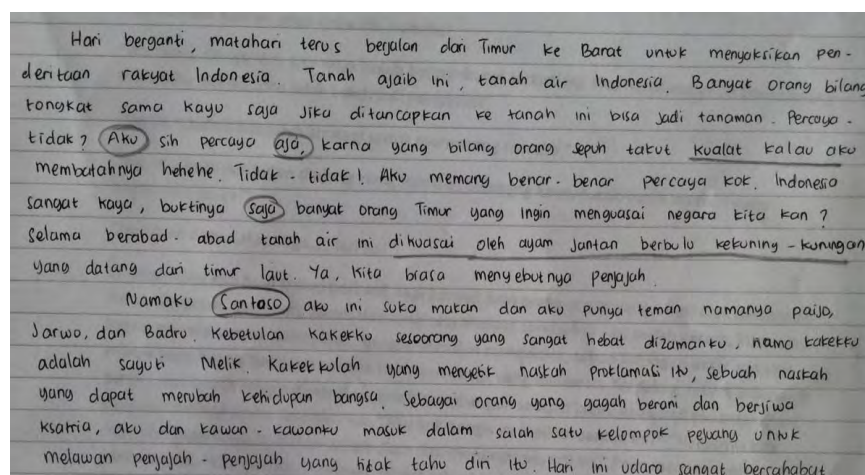 Hari berganti, matahari terus berjalan dari Timur ke Barat untuk menyaksikan pen-
deritaan rakyat Indonesia. Tanah ajaib ini, tanah air Indonesia. Banyak orang bilang
tongkat sama kayu saja jika ditancapkan ke tanah ini bisa jadi tanaman. Percaya -
tidak? Aku sih percaya aja, karna yang bilang orang sepuh takut kualat kalau aku
membatahnya hehehe. Tidak - tidak! Aku memang benar-benar percaya kok. Indonesia
sangat kaya, buktinya saja banyak orang Timur yang ingin menguasai negara kita kan?
Selama berabad-abad tanah air ini dikuasai oleh ayam jantan berbulu kekuning-kuningan
yang datang dari timur laut. Ya, kita biasa menyebutnya penjajah.
Namaku Santoso aku ini suka makan dan aku punya teman namanya paijo,
Jarwo, dan Badru. Kebetulan kakekku seseorang yang sangat hebat dizamanku, nama kakekku
adalah sayuti Melik. Kakekkulah yang mengetik naskah proklamasi itu, sebuah naskah
yang dapat merubah kehidupan bangsa. Sebagai orang yang gagah berani dan berjiwa
ksatria, aku dan kawan-kawanku masuk dalam salah satu kelompok pejuang untuk
melawan penjajah-penjajah yang tidak tahu diri itu. Hari ini udara sangat bersahabat